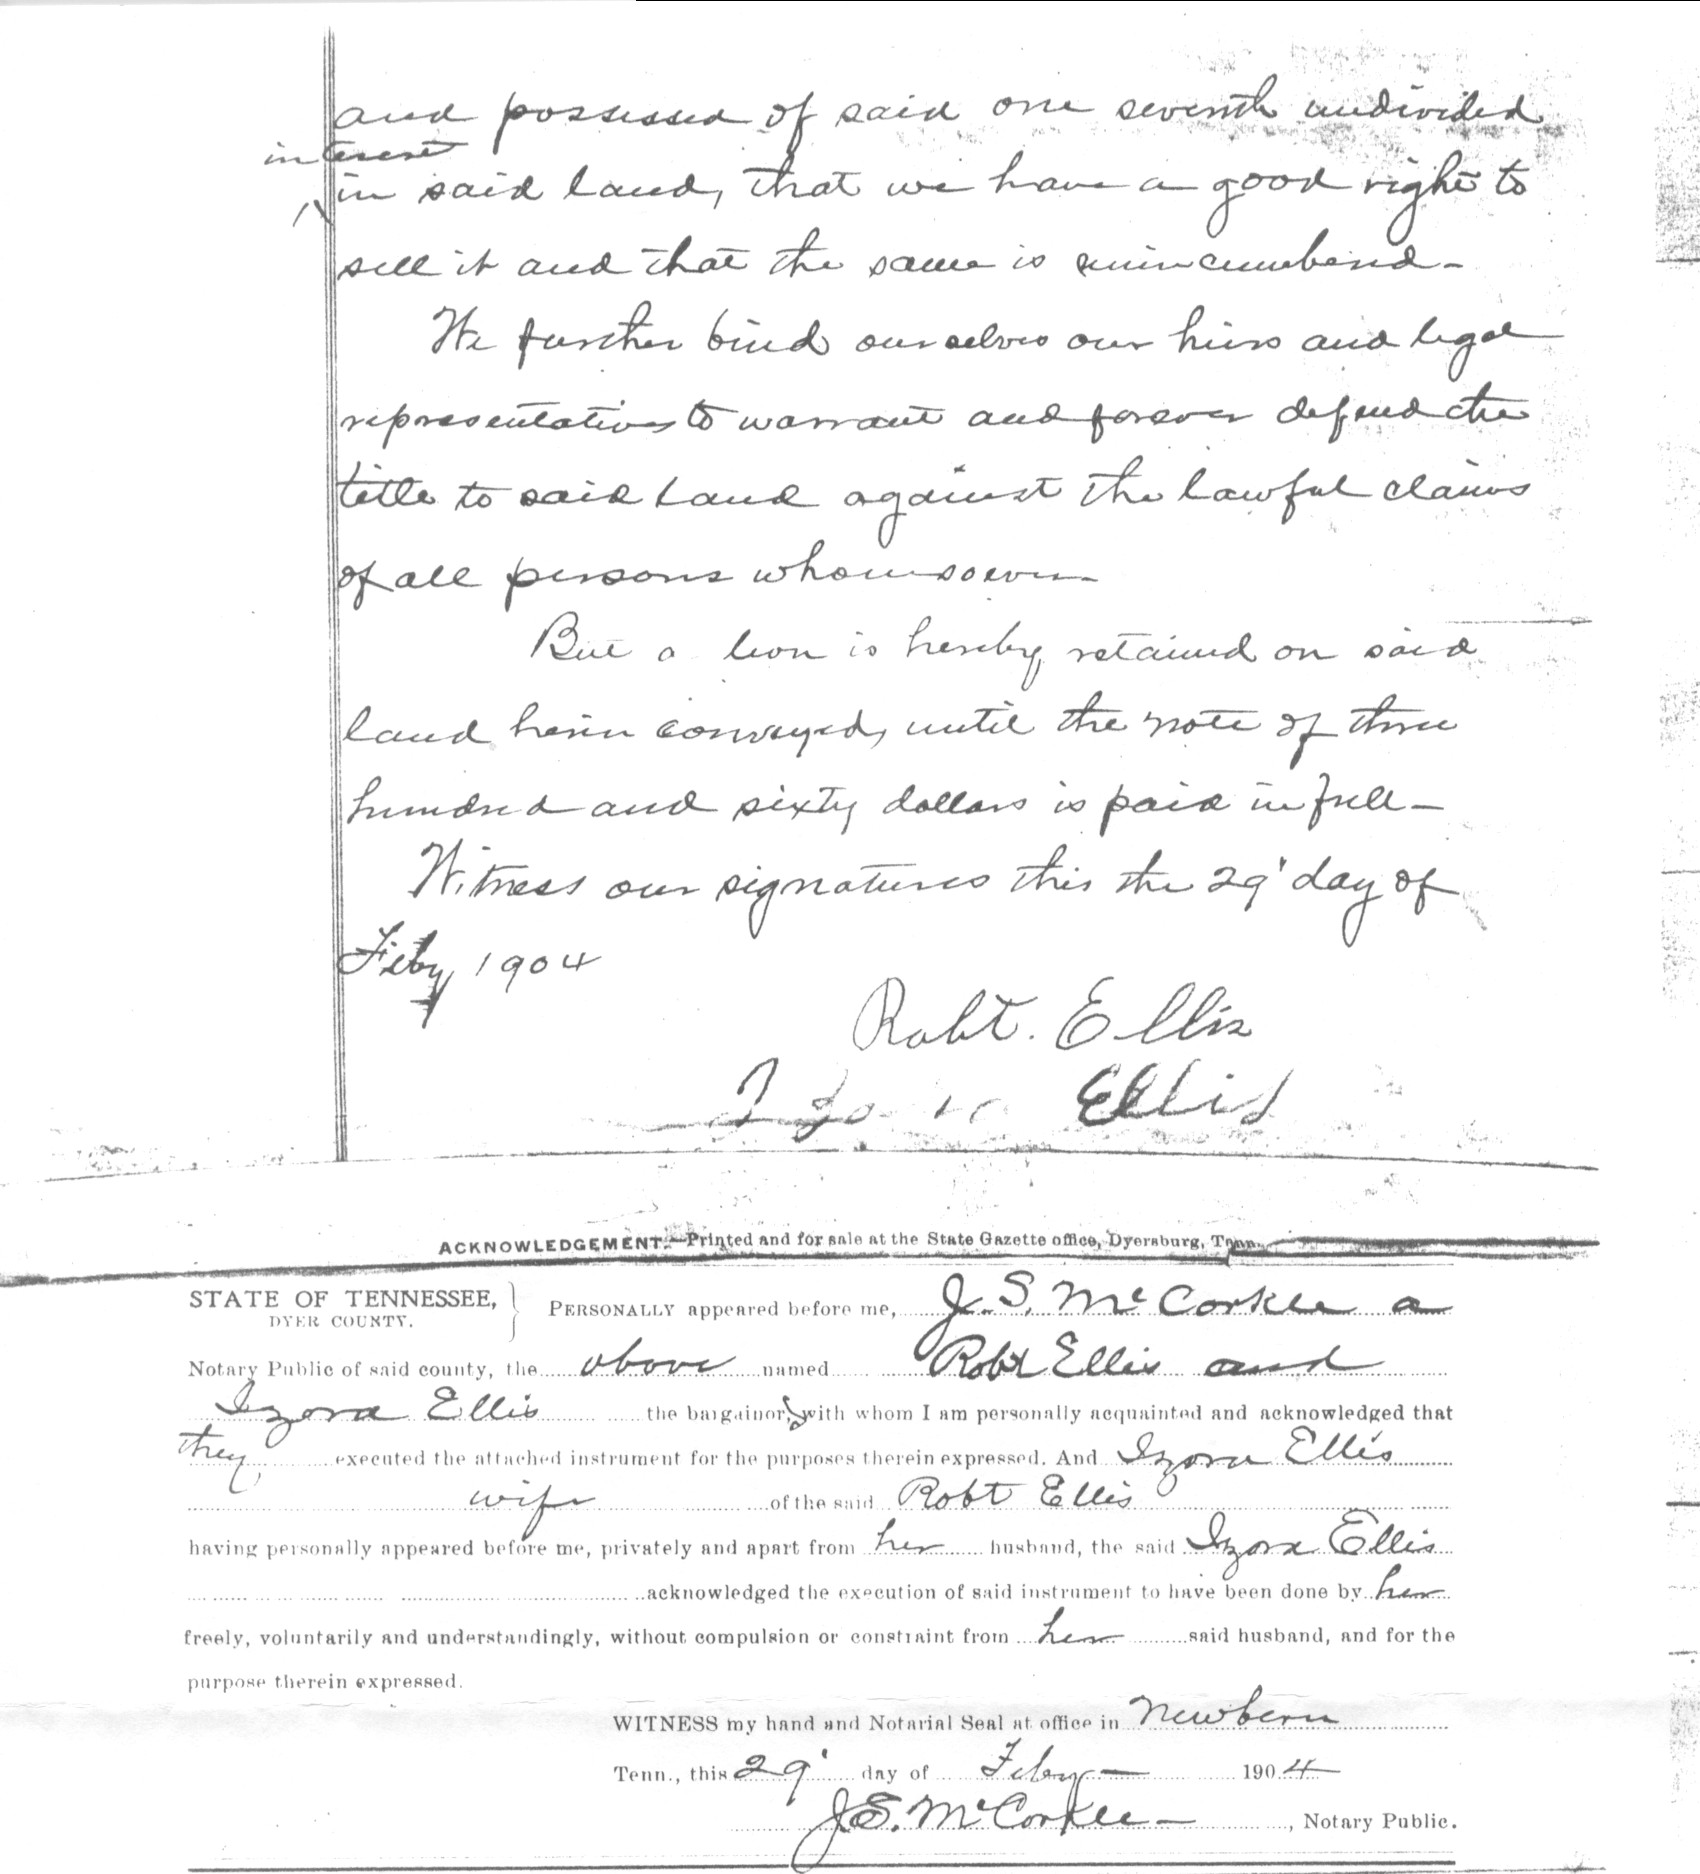 and possessed of said one seventh undivided
interest
in said land, that we have a good right to
sell it and that the same is unincumberd -
We further bind ourselves our heirs and legal
representatives to warrant and forever defend the
title to said land against the lawful claims
of all persons whomsoever
But a lien is hereby retained on said
land herin conveyed, until the note of three
hundred and sixty dollars is paid in full -
Witness our signatures this the 29' day of
Feby 1904
Robt. Ellis
Ellis
ACKNOWLEDGEMENT.—Printed and for sale at the State Gazette office, Dyersburg, Tenn.
STATE OF TENNESSEE,
DYER COUNTY.
PERSONALLY appeared before me, J. S. McCorkle a
Notary Public of said county, the above named Robt Ellis and
Izora Ellis the bargainors, with whom I am personally acquainted and acknowledged that
they executed the attached instrument for the purposes therein expressed. And Izora Ellis
wife of the said Robt Ellis
having personally appeared before me, privately and apart from her husband, the said Izora Ellis
acknowledged the execution of said instrument to have been done by her
freely, voluntarily and understandingly, without compulsion or constraint from her said husband, and for the
purpose therein expressed.
WITNESS my hand and Notarial Seal at office in Newbern
Tenn., this 29' day of Feby — 1904
J. S. McCorkle — , Notary Public.